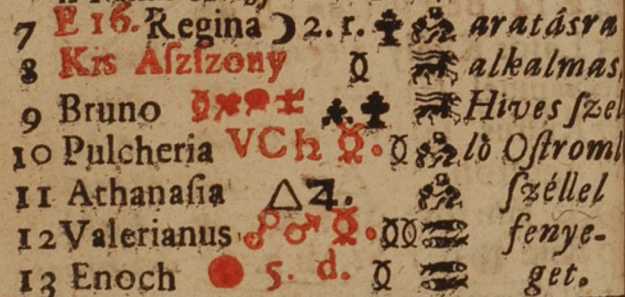 7 E 16. Regina ☽ 2. r. aratásra
8 Kis Aſzſzony ☿ alkalmas
9 Bruno Hives ſzel
10 Pulcheria VC ♄ ☿. lò Oſtroml
11 Athanaſia △ ♃. ſzéllel
12 Valerianus ☍ ♂ ☿. fenye-
13 Enoch 5. d. get.